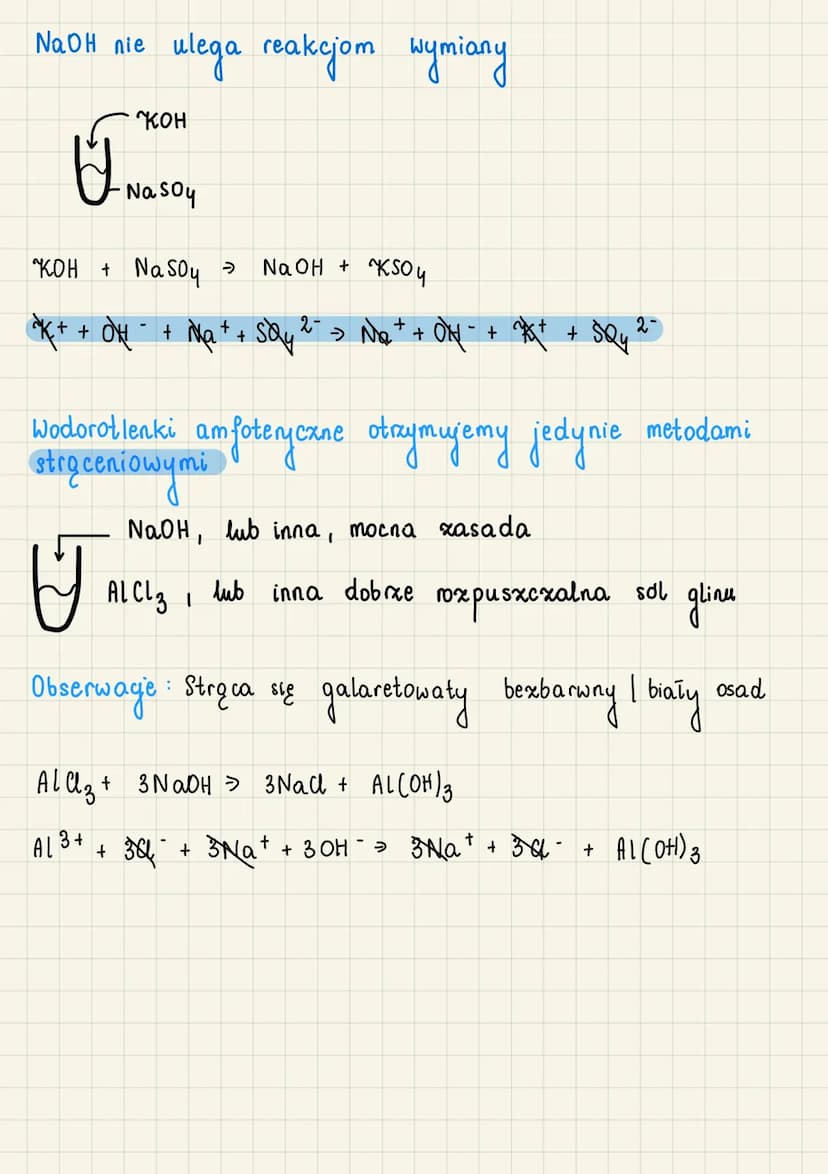 NaOH nie ulega reakcjom wymiany
KOH
NaSO₄
KOH + NaSO₄ → NaOH + KSO₄
K⁺ + OH⁻ + Na⁺ + SO₄²⁻ → Na⁺ + OH⁻ + K⁺ + SO₄²⁻
Wodorotlenki amfoteryczne otrzymujemy jedynie metodami
strąceniowymi
NaOH, lub inna, mocna zasada
AlCl₃, lub inna dobrze rozpuszczalna sól glinu
Obserwacje: Strąca się galaretowaty bezbarwny | biały osad
AlCl₃ + 3NaOH → 3NaCl + Al(OH)₃
Al³⁺ + 3Cl⁻ + 3Na⁺ + 3OH⁻ → 3Na⁺ + 3Cl⁻ + Al(OH)₃